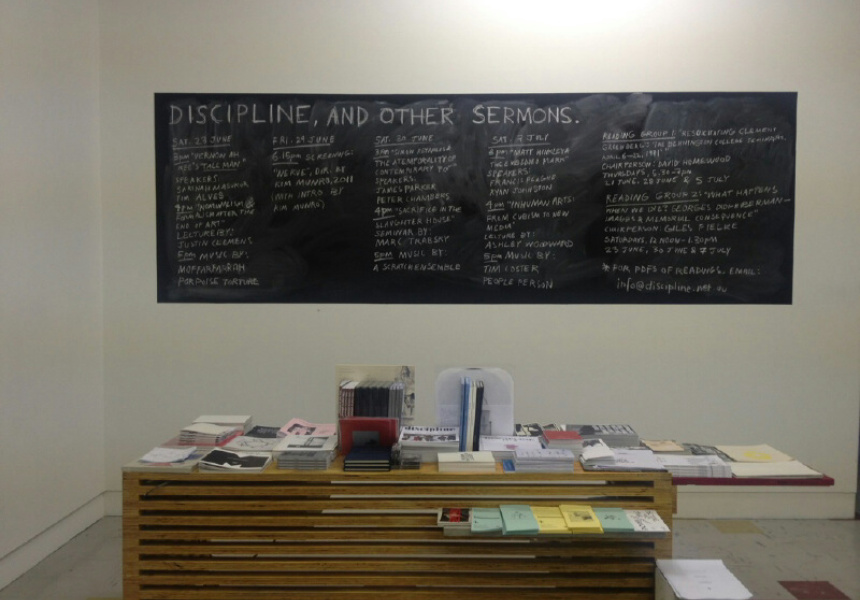 DISCIPLINE, AND OTHER SERMONS.
SAT. 23 JUNE
3PM
"TALL MAN"
SPEAKERS
TIM ALVES
4PM
AFTER THE
END OF ART"
LECTURE BY:
JUSTIN CLEMENS
5PM MUSIC BY:
PORPOISE TORTURE
FRI. 29 JUNE
6.15PM SCREENING:
"NERVE", DIR. BY
KIM MUNRO, 2011
(WITH INTRO BY
KIM MUNRO)
SAT. 30 JUNE
3PM
THE ATEMPORALITY OF
CONTEMPORARY
SPEAKERS:
JAMES PARKER
PETER CHAMBERS
4PM "SACRIFICE IN THE
SLAUGHTER HOUSE"
SEMINAR BY:
MARC TRABSKY
5PM MUSIC BY:
A SCRATCH ENSEMBLE
SAT. 7 JULY
3PM "MATT HINKLEY
SPEAKERS:
FRANCIS PLAGUE
RYAN JOHNSTON
4PM "INHUMAN ARTS:
FROM CUBISM TO NEW
MEDIA"
LECTURE BY:
ASHLEY WOODWARD
5PM MUSIC BY:
TIM COSTER
PEOPLE PERSON
READING GROUP 1: CLEMENT
GREENBERG: THE BENNINGTON COLLEGE SEMINARS,
1971"
CHAIRPERSON: DAVID HOMEWOOD
THURSDAYS, 5.30-7PM
21 JUNE, 28 JUNE & 5 JULY
READING GROUP 2: "WHAT HAPPENS
WHEN WE DIET GEORGES DIDI-HUBERMAN—
IMAGES & MEMORIAL CONSEQUENCE"
CHAIRPERSON GILES FIELKE
SATURDAYS, 12 NOON-1.30PM
23 JUNE, 30 JUNE & 7 JULY
* FOR PDFS OF READINGS, EMAIL:
info@discipline.net.au
discipline